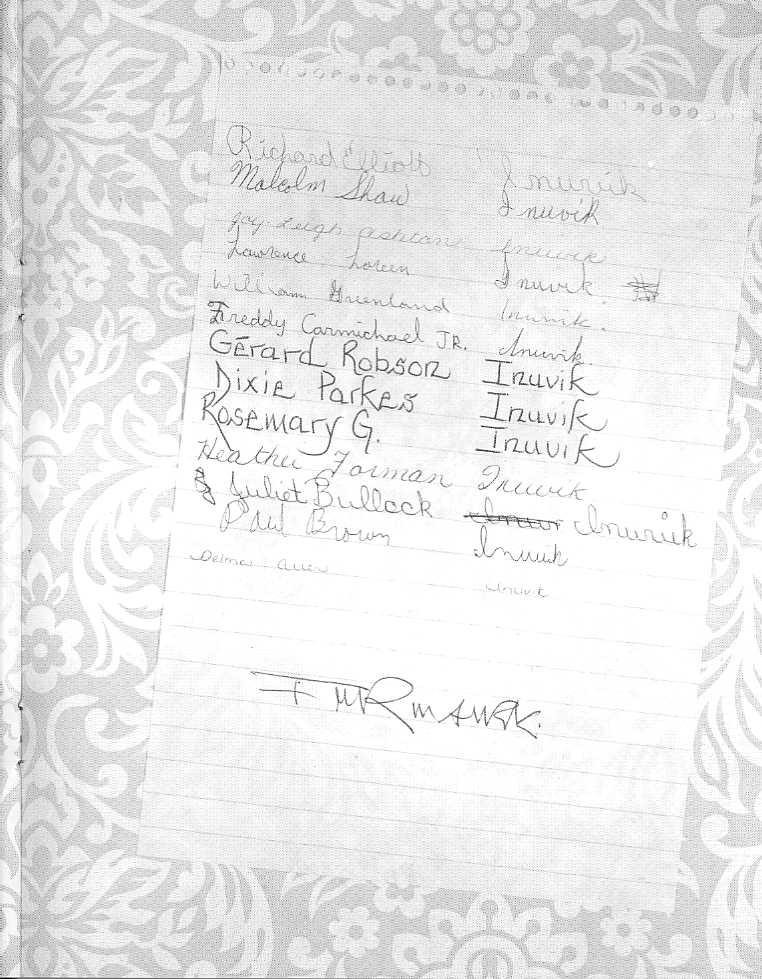 Richard Elliott Inuvik
Malcolm Shaw Inuvik
Joy Leigh Ashton Inuvik
Lawrence Loreen Inuvik.
William Greenland Inuvik.
Freddy Carmichael JR. Inuvik.
Gérard Robson Inuvik
Dixie Parkes Inuvik
Rosemary G. Inuvik
Heather Forman Inuvik
Juliet Bullock Inuvik
Paul Brown Inuvik
Delma Inuvik